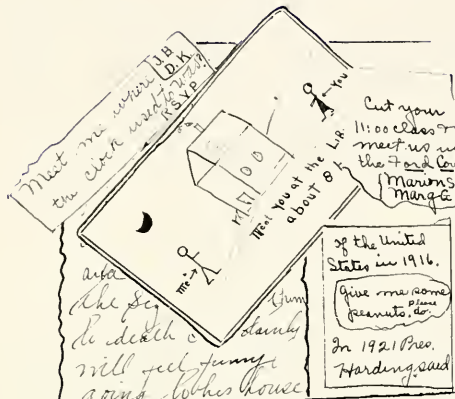 Meet me where
the clock used to was?
J.B.
D.K.
R.S.V.P.
You
Meet You at the LIB.
about 8
me
Cut your
11:00 class &
meet us
the Ford
Marion S
Marg
of the United
States in 1916.
Give me some
peanuts, do.
please
In 1921 Pres.
Harding said
the
to death
will feel funny
going to his house